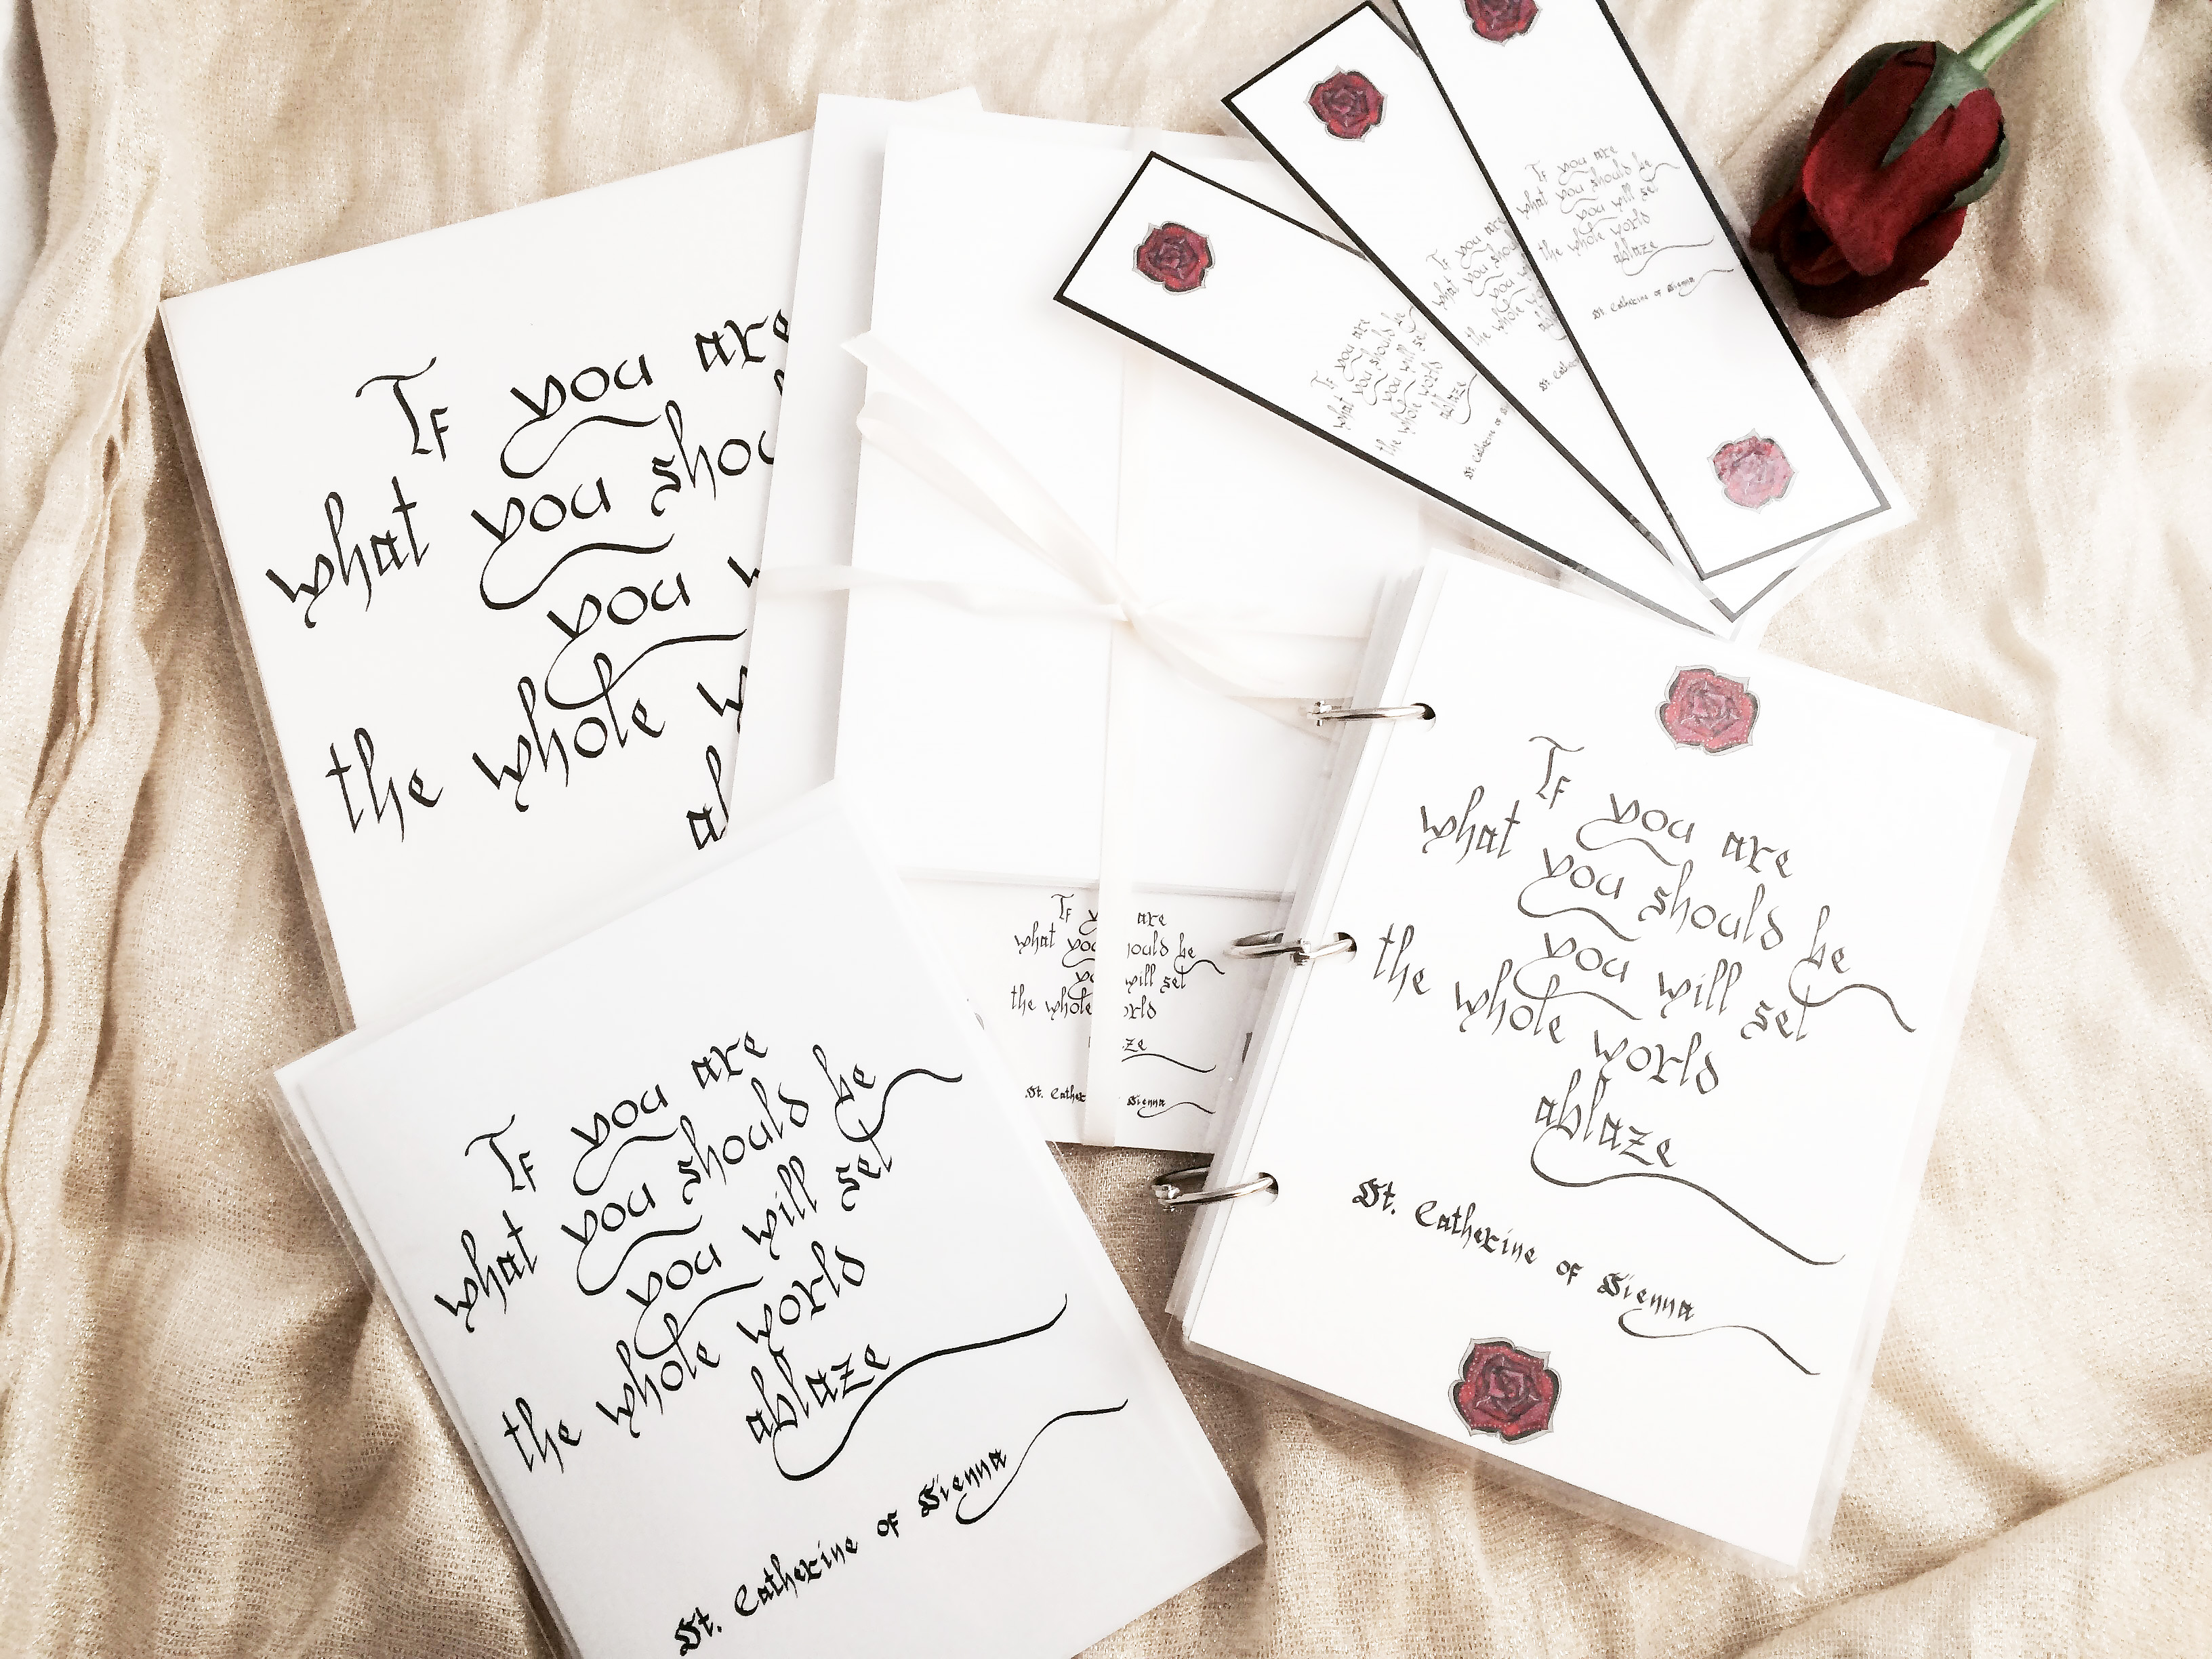 If you are
what you shou
you w
the whole w
al
If you are
what you should be
you will set
the whole world
ablaze
St. Catherine of Sienna
If you are
what you should be
you will set
the whole world
ablaze
St. Catherine of
If you are
what you should
you w
the whole
abl
St. Cathe
If you are
what you should be
you will set
the whole world
ablaze
St. Catherine of Sienna
If y are
what you ould be
yo will set
the whole orld
ze
St. Cathe Sienna
If you are
what you should be
you will set
the whole world
ablaze
St. Catherine of Sienna